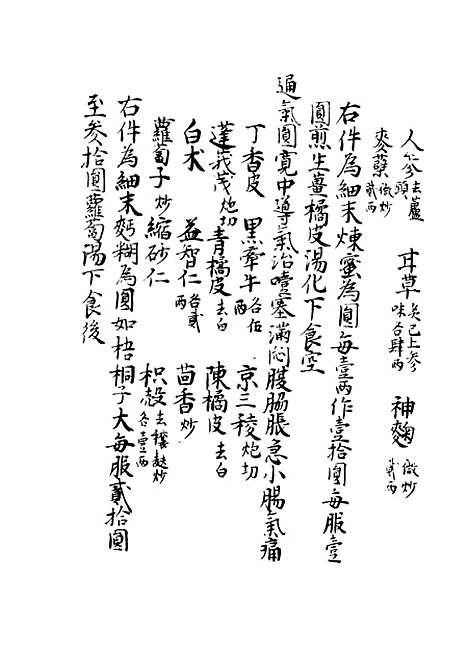 人參去蘆頭　甘草炙已上叄味各肆两　神麹微炒貳两
麥蘖微炒貳两
右件為細末煉蜜為圓每壹两作壹拾圓每服壹
圓煎生薑橘皮湯化下食空
通氣圓寬中導氣治噎塞滿悶腹脇脹急小腸氣痛
丁香皮　黑牽牛各伍两　京三稜炮切
蓬莪茂炮切　青橘皮去白　陳橘皮去白
白术　益智仁各貳两　茴香炒
蘿蔔子炒　縮砂仁　枳殼去穰麩炒各壹两
右件為細末麪糊為圓如梧桐子大每服貳拾圓
至叄拾圓蘿蔔湯下食後